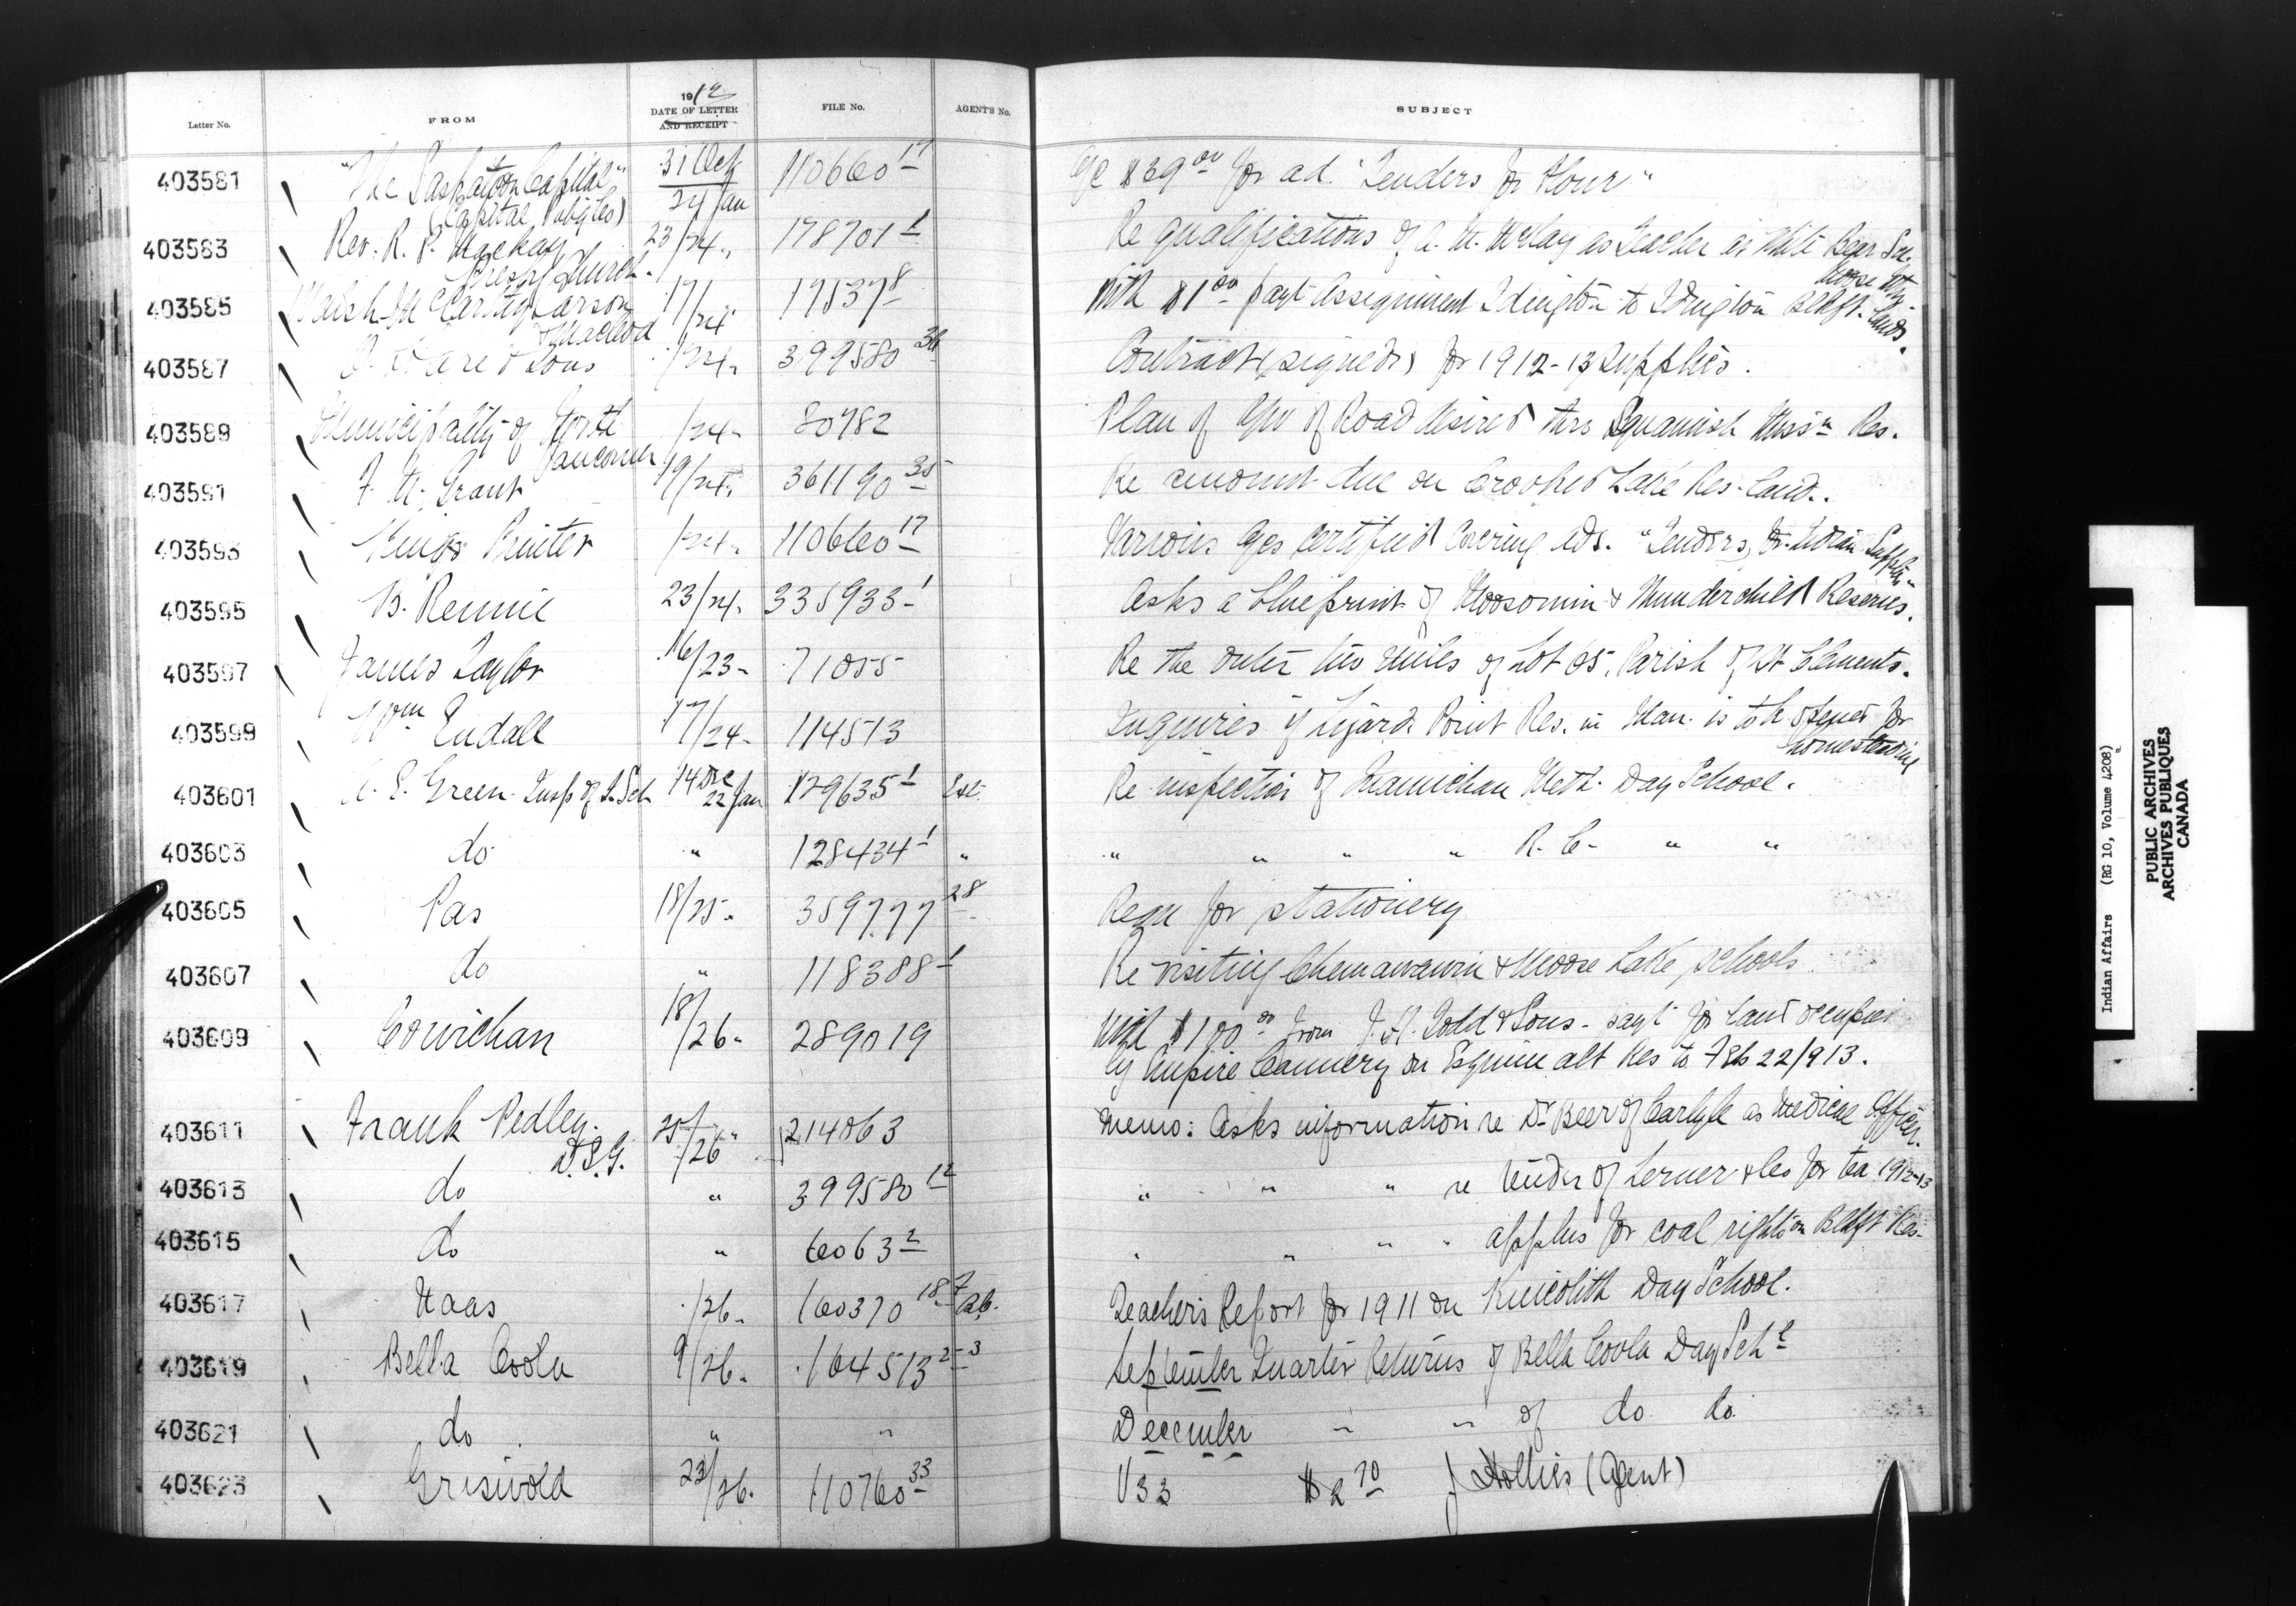 Letter No. FROM 1912 DATE OF LETTER AND RECEIPT FILE No. AGENT'S No. SUBJECT
403581 "The Saskatoon Capital" (Capital Pub'g Co) 31 Oct 24 Jan 110660 17 a/c $39 00 for ad. "Tenders for Flour"
403583 Rev. R. P. Mackay Presby Church. 23/24. 178701 1 Re qualifications of A. M. McKay as Teacher at White Bear Sc. Moose Mtn.
403585 Walsh McCarthy Carson & Macleod 17/24 17537 8 With $1 00 payt Assignment Idington to Idington Blkft. Lands.
403587 & Sons /24. 399580 36 Contract (signed) for 1912-13 supplies.
403589 Municipality of North Vancouver /24. 80782 Plan of of Road desired thro Squamish Miss'n Res.
403591 F. M. Grant 19/24. 361190 35 Re amount due on Crooked Lake Res. land.
403593 Kings Printer /24. 110660 17 Various a/cs certified covering ads. "Tenders for Indian Supplies"
403595 B. Rennie 23/24. 335933 1 Asks a blueprint of Moosomin & Thunderchild Reserves.
403597 James Taylor 16/23. 71055 Re the outer two miles of Lot 65, Parish of St Clements.
403599 Wm Endall 17/24. 114513 Inquires if Lizard Point Res. in Man. is to be opened for homesteading
403601 A. E. Green Insp of I. Sch 14 Dec 22 Jan 129635 1 Re inspection of Quamichan Meth. Day School.
403603 do " 128434 1 " " " " " R. C. " "
403605 Pas 18/25. 359777 28 Reqn for stationery
403607 do " 118388 1 Re visiting Chemawawin & Moose Lake schools
403609 Cowichan 18/26. 289019 With $100 00 from J. H. Todd & Sons - payt for land occupied
by Empire Cannery on Esquimalt Res to Feb 22/913.
403611 Frank Pedley. D.S.G. 25/26 214063 Memo: Asks information re Dr Beer of Carlyle as Medical Officer.
403613 do " 399580 12 " " " re tender of Lerner & Co for tea 1912-13
403615 do " 6063 2 " " " " applns for coal rights on Blkft Res.
403617 Naas /26. 160370 18 Teacher's Report for 1911 on Kincolith Day School.
403619 Bella Coola 9/26. 164513 2-3 September Quarter Returns of Bella Coola Day Sch'l
403621 do " " December " " of do do
403623 Griswold 23/26. 110760 33 V33 $2 70 J Hollies (Agent)
Indian Affairs (RG 10, Volume 4208)
PUBLIC ARCHIVES
ARCHIVES PUBLIQUES
CANADA